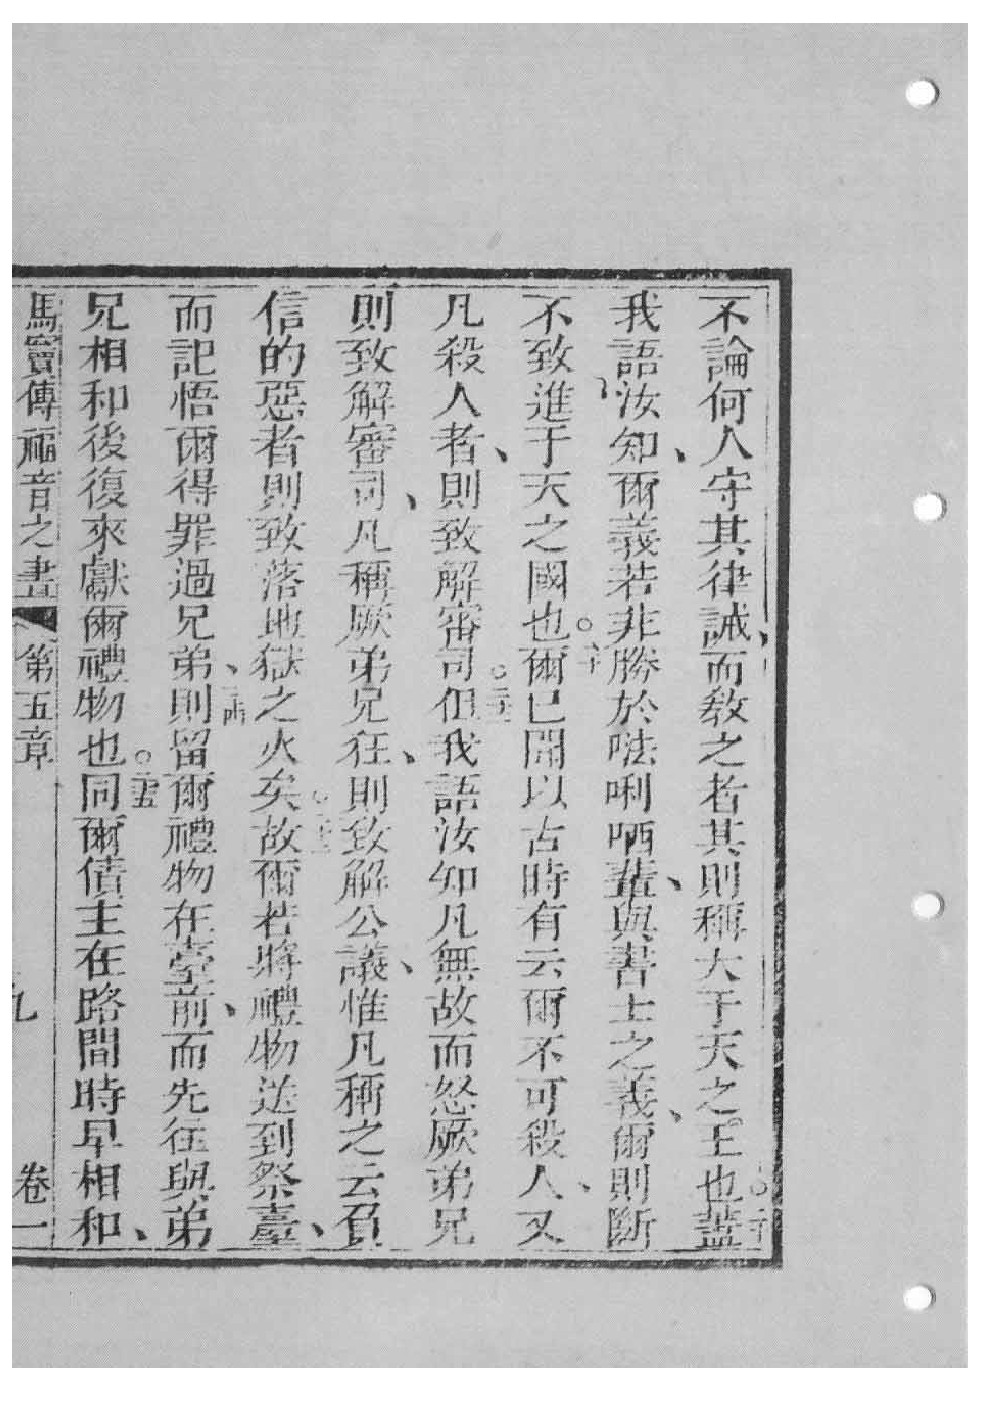 不論何人守其律誡、而教之者其則稱大于天之王也。二十蓋
我語汝知、爾義若非勝於𠵽唎哂輩、與書士之義、爾則斷
不致進于天之國也。爾已聞以古時有云爾不可殺人、又
凡殺人者、則致解審司。但我語汝知凡無故而怒厥弟兄
則致解審司、凡稱厥弟兄狂、則致解公議、惟凡稱之云負
信的惡者則致落地獄之火矣。故爾若將禮物送到祭臺、
而記悟爾得罪過兄弟、則留爾禮物在臺前、而先往與弟
兄相和後復來獻爾禮物也。二五同爾債主在路間時早相和、
馬竇傳福音之書 第五章 九 卷一